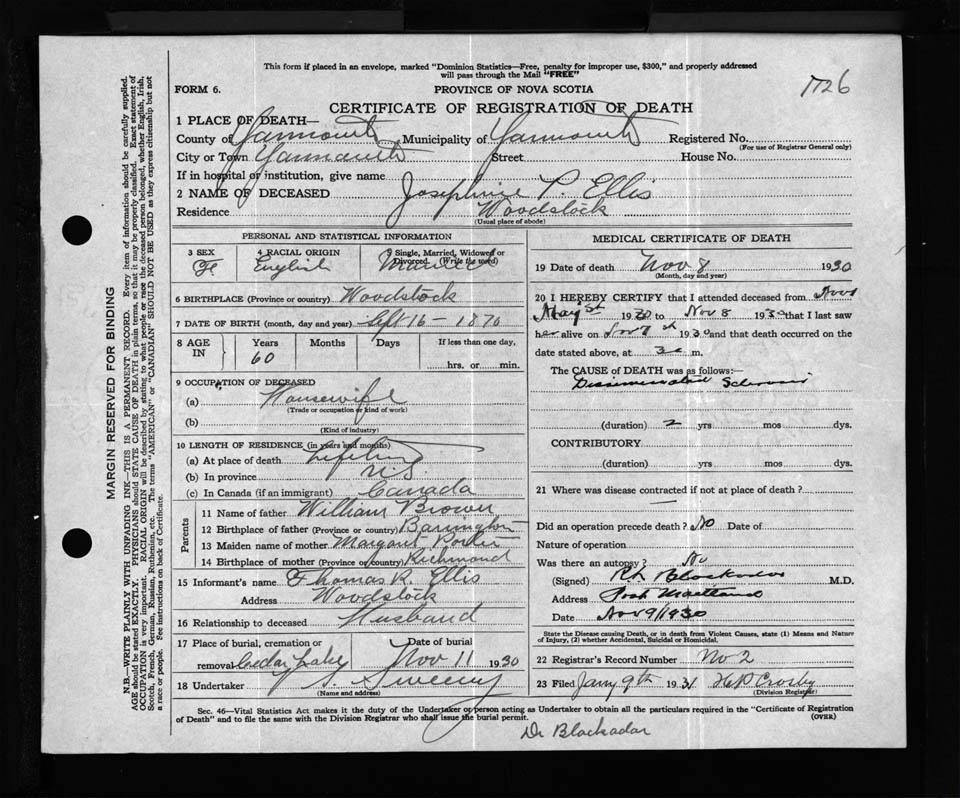 This form if placed in an envelope, marked "Dominion Statistics—Free, penalty for improper use, $300," and properly addressed
will pass through the Mail "FREE"
1726
FORM 6.
PROVINCE OF NOVA SCOTIA
CERTIFICATE OF REGISTRATION OF DEATH
1 PLACE OF DEATH—
County of Yarmouth Municipality of Yarmouth Registered No.
(For use of Registrar General only)
City or Town Yarmouth Street House No.
If in hospital or institution, give name
2 NAME OF DECEASED Josephine P. Ellis
Residence Woodstock
(Usual place of abode)
PERSONAL AND STATISTICAL INFORMATION
3 SEX 4 RACIAL ORIGIN 5 Single, Married, Widowed or
Divorced. (Write the word)
Fe English Married
6 BIRTHPLACE (Province or country) Woodstock
7 DATE OF BIRTH (month, day and year) Sept 16 - 1870
8 AGE IN Years Months Days If less than one day,
60
hrs. or min.
9 OCCUPATION OF DECEASED
(a) Housewife
(Trade or occupation or kind of work)
(b)
(Kind of industry)
10 LENGTH OF RESIDENCE (in years and months)
(a) At place of death Lifetime
(b) In province N.S.
(c) In Canada (if an immigrant) Canada
Parents
11 Name of father William Brown
12 Birthplace of father (Province or country) Barrington
13 Maiden name of mother Margaret Porter
14 Birthplace of mother (Province or country) Richmond
15 Informant's name Thomas K. Ellis
Address Woodstock
16 Relationship to deceased Husband
17 Place of burial, cremation or Date of burial
removal Cedar Lake Nov 11 1930
18 Undertaker V. S. Sweeny
(Name and address)
MEDICAL CERTIFICATE OF DEATH
19 Date of death Nov 8 1930
(Month, day and year)
20 I HEREBY CERTIFY that I attended deceased from
May 1930 to Nov 8 1930 that I last saw
her alive on Nov 1930 and that death occurred on
date stated above, at 3 m.
The CAUSE of DEATH was as follows:—
Disseminated Sclerosis
(duration) 2 yrs mos dys.
CONTRIBUTORY
(duration) yrs. mos. dys.
21 Where was disease contracted if not at place of death?
Did an operation precede death? No Date of
Nature of operation
Was there an autopsy? No
(Signed) Blackadar M.D.
Address Port Maitland
Date Nov 9/1930
State the Disease causing Death, or in death from Violent Causes, state (1) Means and Nature
of Injury, (2) whether Accidental, Suicidal or Homicidal.
22 Registrar's Record Number No 2
23 Filed Jany 9th 1931 H P Crosby
(Division Registrar)
Sec. 46—Vital Statistics Act makes it the duty of the Undertaker or person acting as Undertaker to obtain all the particulars required in the "Certificate of Registration
of Death" and to file the same with the Division Registrar who shall issue the burial permit.
(OVER)
Dr Blackadar
MARGIN RESERVED FOR BINDING
N.B.—WRITE PLAINLY WITH UNFADING INK—THIS IS A PERMANENT RECORD. Every item of information should be carefully supplied.
AGE should be stated EXACTLY. PHYSICIANS should STATE CAUSE OF DEATH in plain terms, so that it may be properly classified. Exact statement of
OCCUPATION is very important. RACIAL ORIGIN will be described by stating to what people or race the deceased person belonged, whether English, Irish,
Scotch, French, German, Russian, Ruthenian, etc. The terms "AMERICAN" or "CANADIAN" SHOULD NOT BE USED as they express citizenship but not
a race or people. See instructions on back of Certificate.